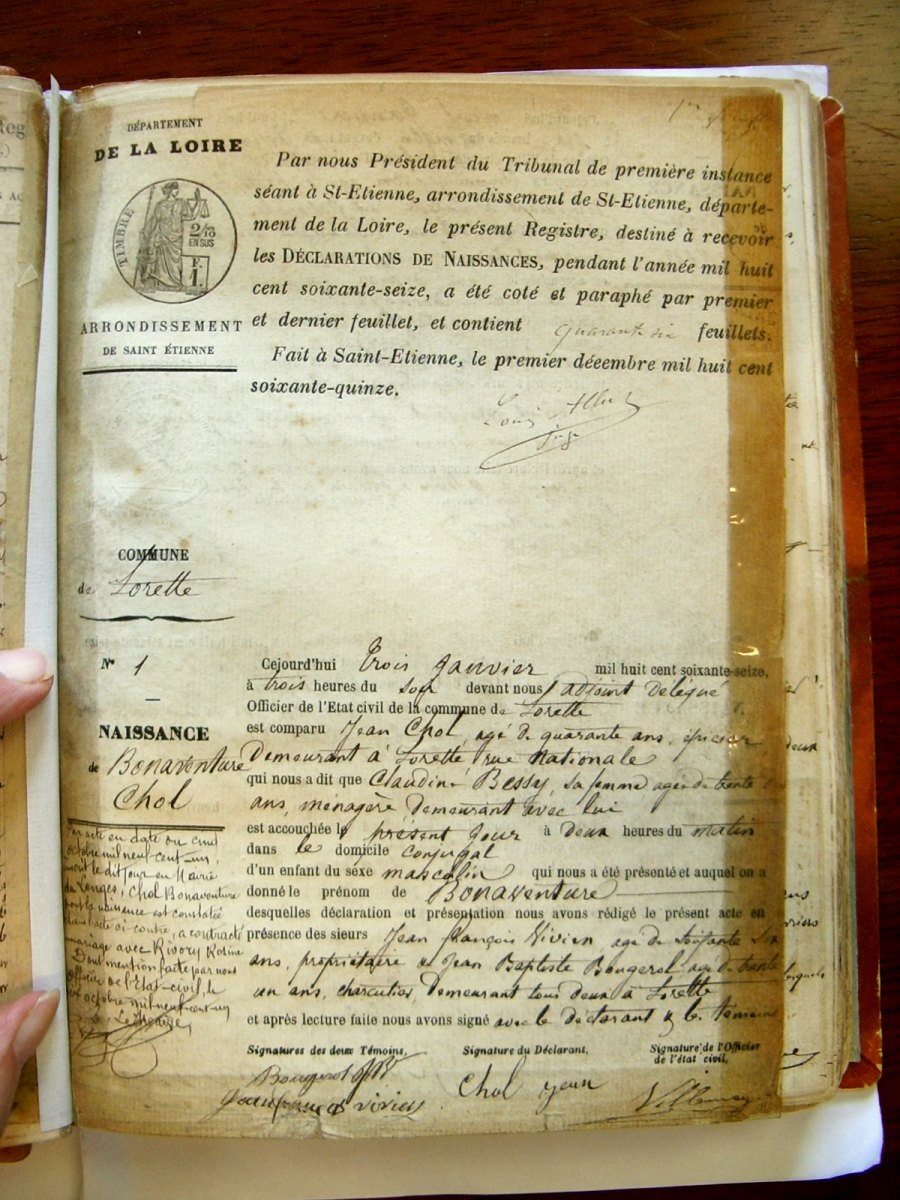 DÉPARTEMENT
DE LA LOIRE
TIMBRE
2/10
EN SUS
1F.
ARRONDISSEMENT
DE SAINT ÉTIENNE
Par nous Président du Tribunal de première instance
séant à St-Etienne, arrondissement de St-Etienne, départe-
ment de la Loire, le présent Registre, destiné à recevoir
les DÉCLARATIONS DE NAISSANCES, pendant l'année mil huit
cent soixante-seize, a été coté et paraphé par premier
et dernier feuillet, et contient quarante six feuillets.
Fait à Saint-Etienne, le premier déeembre mil huit cent
soixante-quinze.
COMMUNE
de Lorette
N° 1
NAISSANCE
de Bonaventure
Chol
Cejourd'hui trois Janvier mil huit cent soixante-seize,
à trois heures du soir devant nous adjoint délégué
Officier de l'Etat civil de la commune de Lorette
est comparu Jean Chol, agé de quarante ans, épicier
Demeurant à Lorette rue Nationale
qui nous a dit que Claudine Bessy, sa femme agée de trente
ans, ménagère demeurant avec lui
est accouchée le présent jour à deux heures du matin
dans le domicile conjugal
d'un enfant du séxe masculin qui nous a été présenté et auquel on a
donné le prénom de Bonaventure
desquelles déclaration et présentation nous avons rédigé le présent acte en
présence des sieurs Jean françois Vivien agé de soixante six
ans, propriétaire & Jean Baptiste Bougerol agé de trente
un ans, charcutier, demeurant tous deux à Lorette
et après lecture faite nous avons signé avec le déclarant & les témoins
Par acte en date du cinq
octobre mil neuf cent un,
inscrit le dit jour en Mairie
de Longes, Chol Bonaventure
dont la naissance est constatée
dans l'acte ci-contre, a contracté
mariage avec Rivory
Dont mention faite par nous
Officier de l'Etat-civil, le
octobre mil neuf cent un
Signatures des deux Témoins,
Signature du Déclarant,
Signature de l'Officier
de l'état civil,
Bougerol
Chol jean
vivien